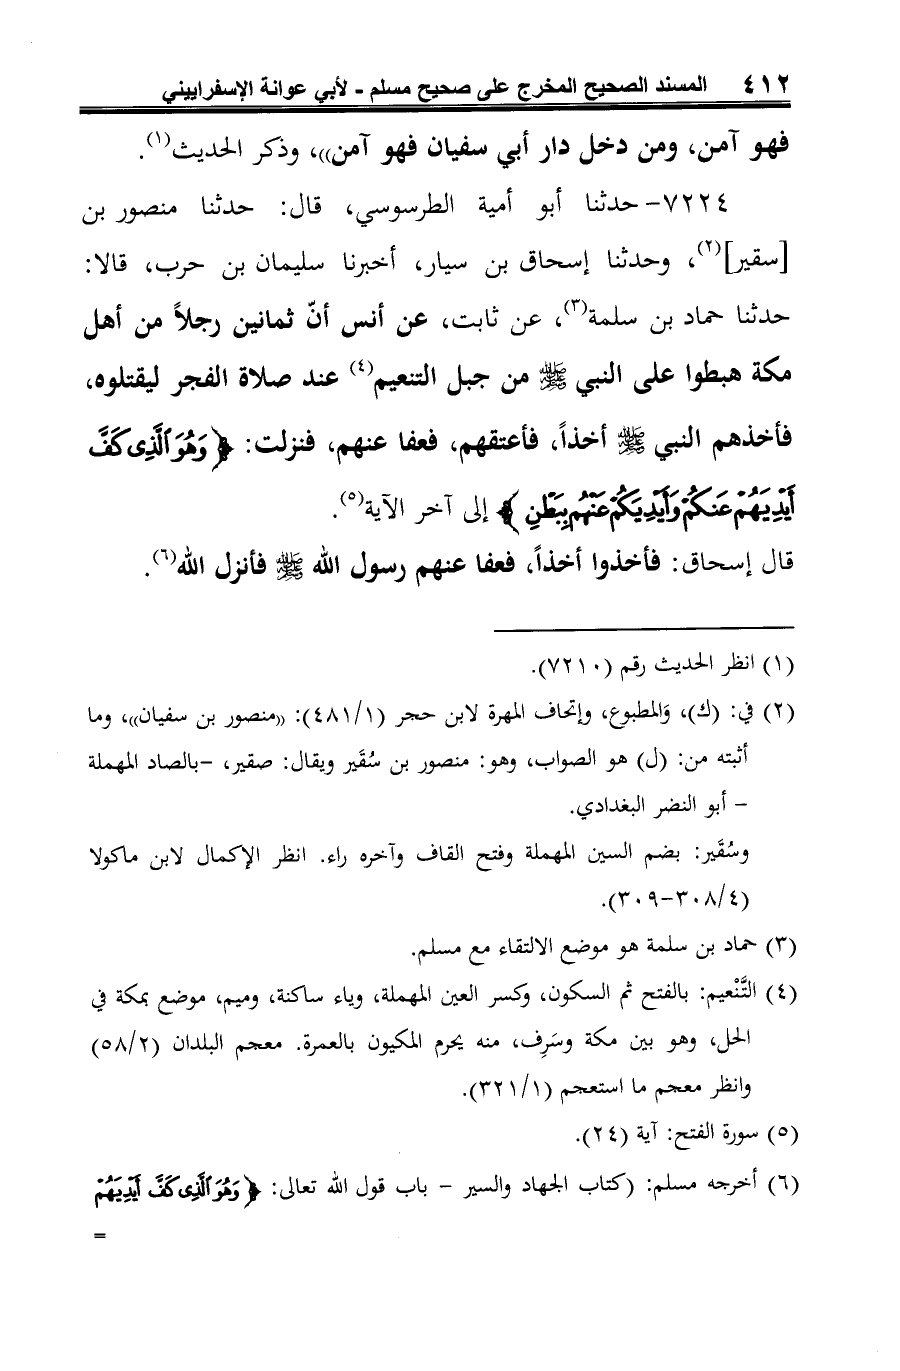 ٤١٢ المسند الصحيح المخرج على صحيح مسلم - لأبي عوانة الإسفراييني
فهو آمن، ومن دخل دار أبي سفيان فهو آمن))، وذكر الحديث(١).
٧٢٢٤- حدثنا أبو أمية الطرسوسي، قال: حدثنا منصور بن
[سقير](٢)، وحدثنا إسحاق بن سيار، أخبرنا سليمان بن حرب، قالا:
حدثنا حماد بن سلمة(٣)، عن ثابت، عن أنس أنّ ثمانين رجلاً من أهل
مكة هبطوا على النبي ﷺ من جبل التنعيم(٤) عند صلاة الفجر ليقتلوه،
فأخذهم النبي ﷺ أخذاً، فأعتقهم، فعفا عنهم، فنزلت: ﴿وَهُوَ ٱلَّذِى كَفَّ
أَيْدِيَهُمْ عَنكُمْ وَأَيْدِيَكُمْ عَنْهُم بِبَطْنِ﴾ إلى آخر الآية(٥).
قال إسحاق: فأخذوا أخذاً، فعفا عنهم رسول الله ﷺ فأنزل الله(٦).
(١) انظر الحديث رقم (٧٢١٠).
(٢) في: (ك)، والمطبوع، وإتحاف المهرة لابن حجر (٤٨١/١): ((منصور بن سفيان))، وما
أثبته من: (ل) هو الصواب، وهو: منصور بن سُقَير ويقال: صقير، -بالصاد المهملة
- أبو النضر البغدادي.
وسُقَّير: بضم السين المهملة وفتح القاف وآخره راء. انظر الإكمال لابن ماكولا
(٣٠٨/٤-٣٠٩).
(٣) حماد بن سلمة هو موضع الالتقاء مع مسلم.
(٤) التَّنْعيم: بالفتح ثم السكون، وكسر العين المهملة، وياء ساكنة، وميم، موضع بمكة في
الحل، وهو بين مكة وسَرِف، منه يحرم المكيون بالعمرة. معجم البلدان (٥٨/٢)
وانظر معجم ما استعجم (٣٢١/١).
(٥) سورة الفتح: آية (٢٤).
(٦) أخرجه مسلم: (كتاب الجهاد والسير - باب قول الله تعالى: ﴿وَهُوَ ٱلَّذِى كَفَّ أَيْدِيَهُمْ
=